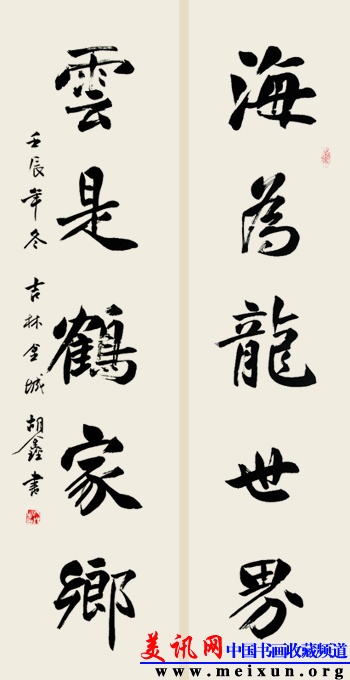 海為龍世界
雲是鶴家鄉
壬辰年冬 吉林金城 胡鑫書
美讯网 中国书画收藏频道
www.meixun.org